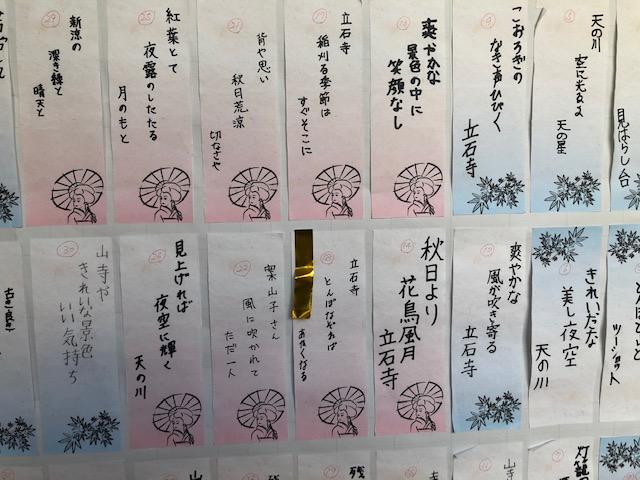 見はらし台
5
天の川
空に光るよ
天の星
9
こおろぎの
なき声ひびく
立石寺
爽やかな
景色の中に
笑顔なし
17
立石寺
稲刈る季節は
すぐそこに
21
背や思い
秋日荒涼
切なさや
25
紅葉とて
夜露のしたたる
月のもと
29
新涼の
深き緑と
晴天と
ツーショット
6
きれいだな
美し夜空
天の川
爽やかな
風が吹き寄る
立石寺
14
秋日より
花鳥風月
立石寺
立石寺
とんぼなぞれば
あかくなる
22
案山子さん
風に吹かれて
ただ一人
26
見上げれば
夜空に輝く
天の川
30
山寺や
きれいな景色
いい気持ち
灯籠の
山寺
残
山